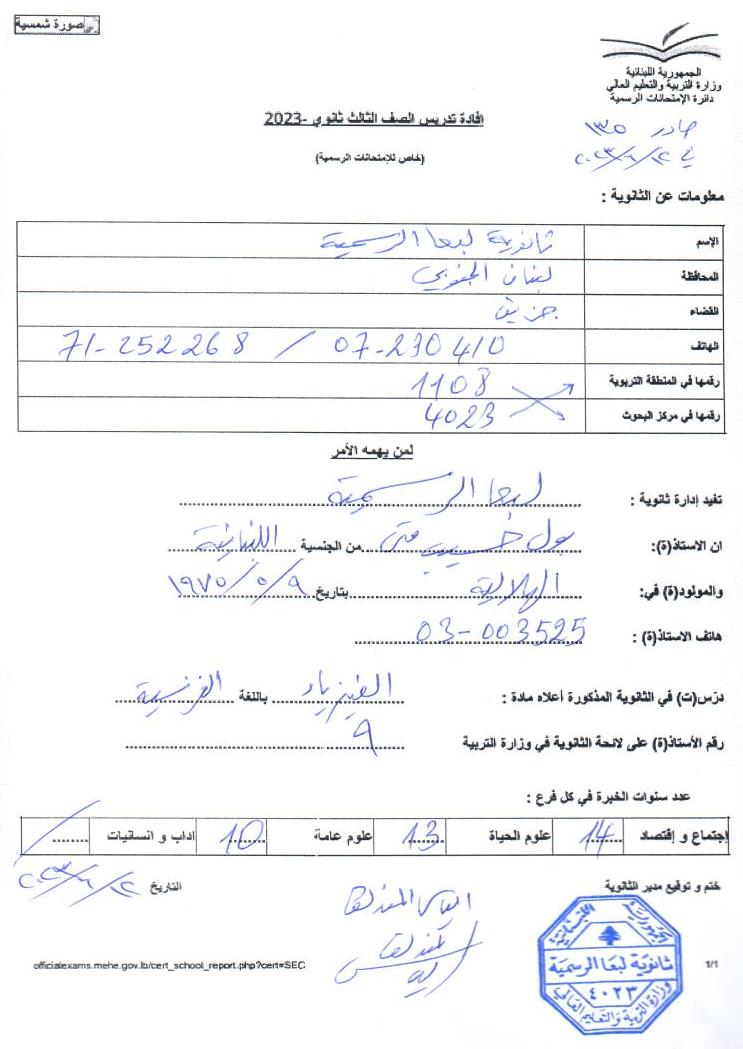 صورة شمسية
الجمهورية اللبنانية
وزارة التربية والتعليم العالي
دائرة الإمتحانات الرسمية
صادر ١٣٥
في ٢٠٢٣/٦/١٢
إفادة تدريس الصف الثالث ثانوي -2023
(خاص للإمتحانات الرسمية)
معلومات عن الثانوية :
الإسم ثانوية لبعا الرسمية
المحافظة لبنان الجنوبي
القضاء جزين
الهاتف 07-230410 / 71-252268
رقمها في المنطقة التربوية 1108
رقمها في مركز البحوث 4023
لمن يهمه الأمر
تفيد إدارة ثانوية : لبعا الرسمية
ان الاستاذ(ة): بول حسيب متى من الجنسية اللبنانية
والمولود(ة) في: الهلالية بتاريخ ١٩٧٥/٥/٩
هاتف الاستاذ(ة) : 03-003525
درّس(ت) في الثانوية المذكورة أعلاه مادة : الفيزياء باللغة الفرنسية
رقم الأستاذ(ة) على لائحة الثانوية في وزارة التربية ٩
عدد سنوات الخبرة في كل فرع :
إجتماع و إقتصاد 14 علوم الحياة 13 علوم عامة 10 اداب و انسانيات /
ختم و توقيع مدير الثانوية التاريخ ٢٠٢٣/٦/١٢
الجمهورية اللبنانية
ثانوية لبعا الرسمية
٤٠٢٣
وزارة التربية والتعليم العالي
officialexams.mehe.gov.lb/cert_school_report.php?cert=SEC
1/1